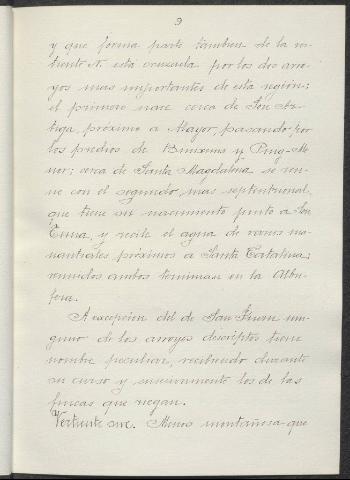 9
y que forma parte tambien de la ver-
tiente N. está cruzada por los dos arro-
yos mas importantes de esta region;
el primero nace cerca de Son Ar-
tiga, próximo a Mayor, pasando por
los predios de Binixems y Puig-Me-
nor; cerca de Santa Magdalena se reu-
ne con el segundo, mas septentrional,
que tiene su nacimiento junto a Son
y recibe el agua de varios ma-
nantiales próximos a Santa Catalina;
reunidos ambos terminan en la Albu-
fera.
A excepcion del de San Juan nin-
guno de los arroyos descriptos tiene
nombre peculiar, recibiendo durante
su curso y unicamente los de las
fincas que riegan.
Vertiente sur. Menos montañosa que